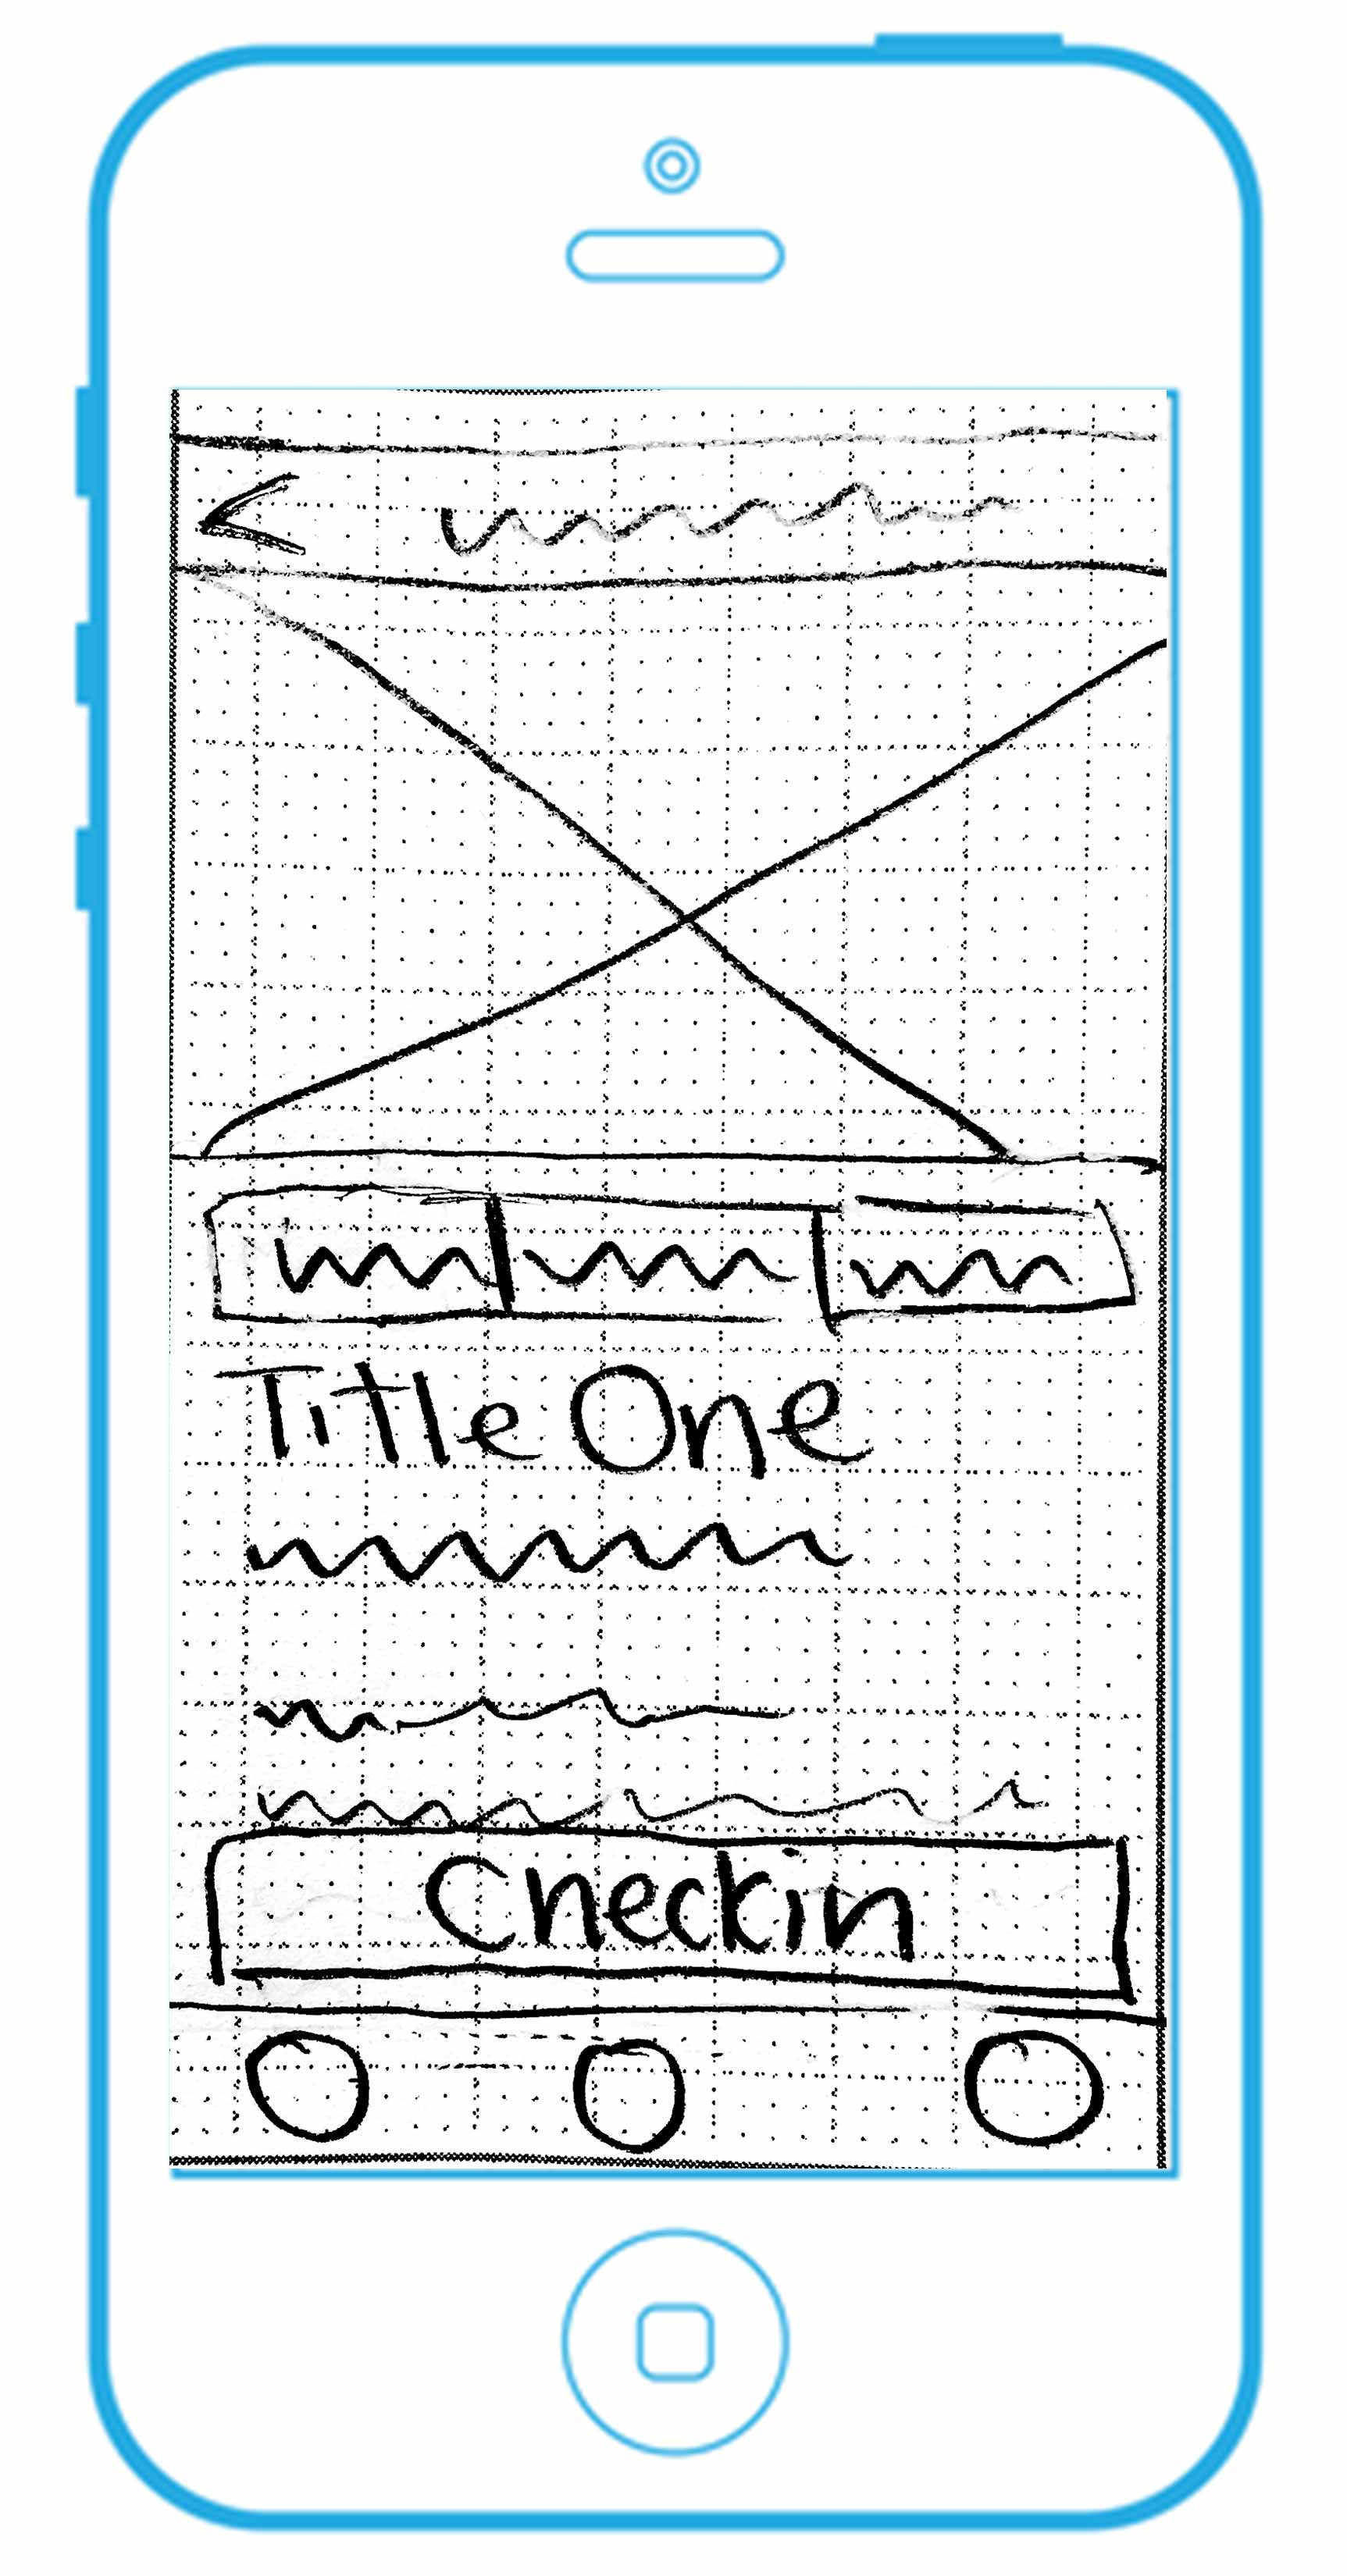 Title One
Checkin